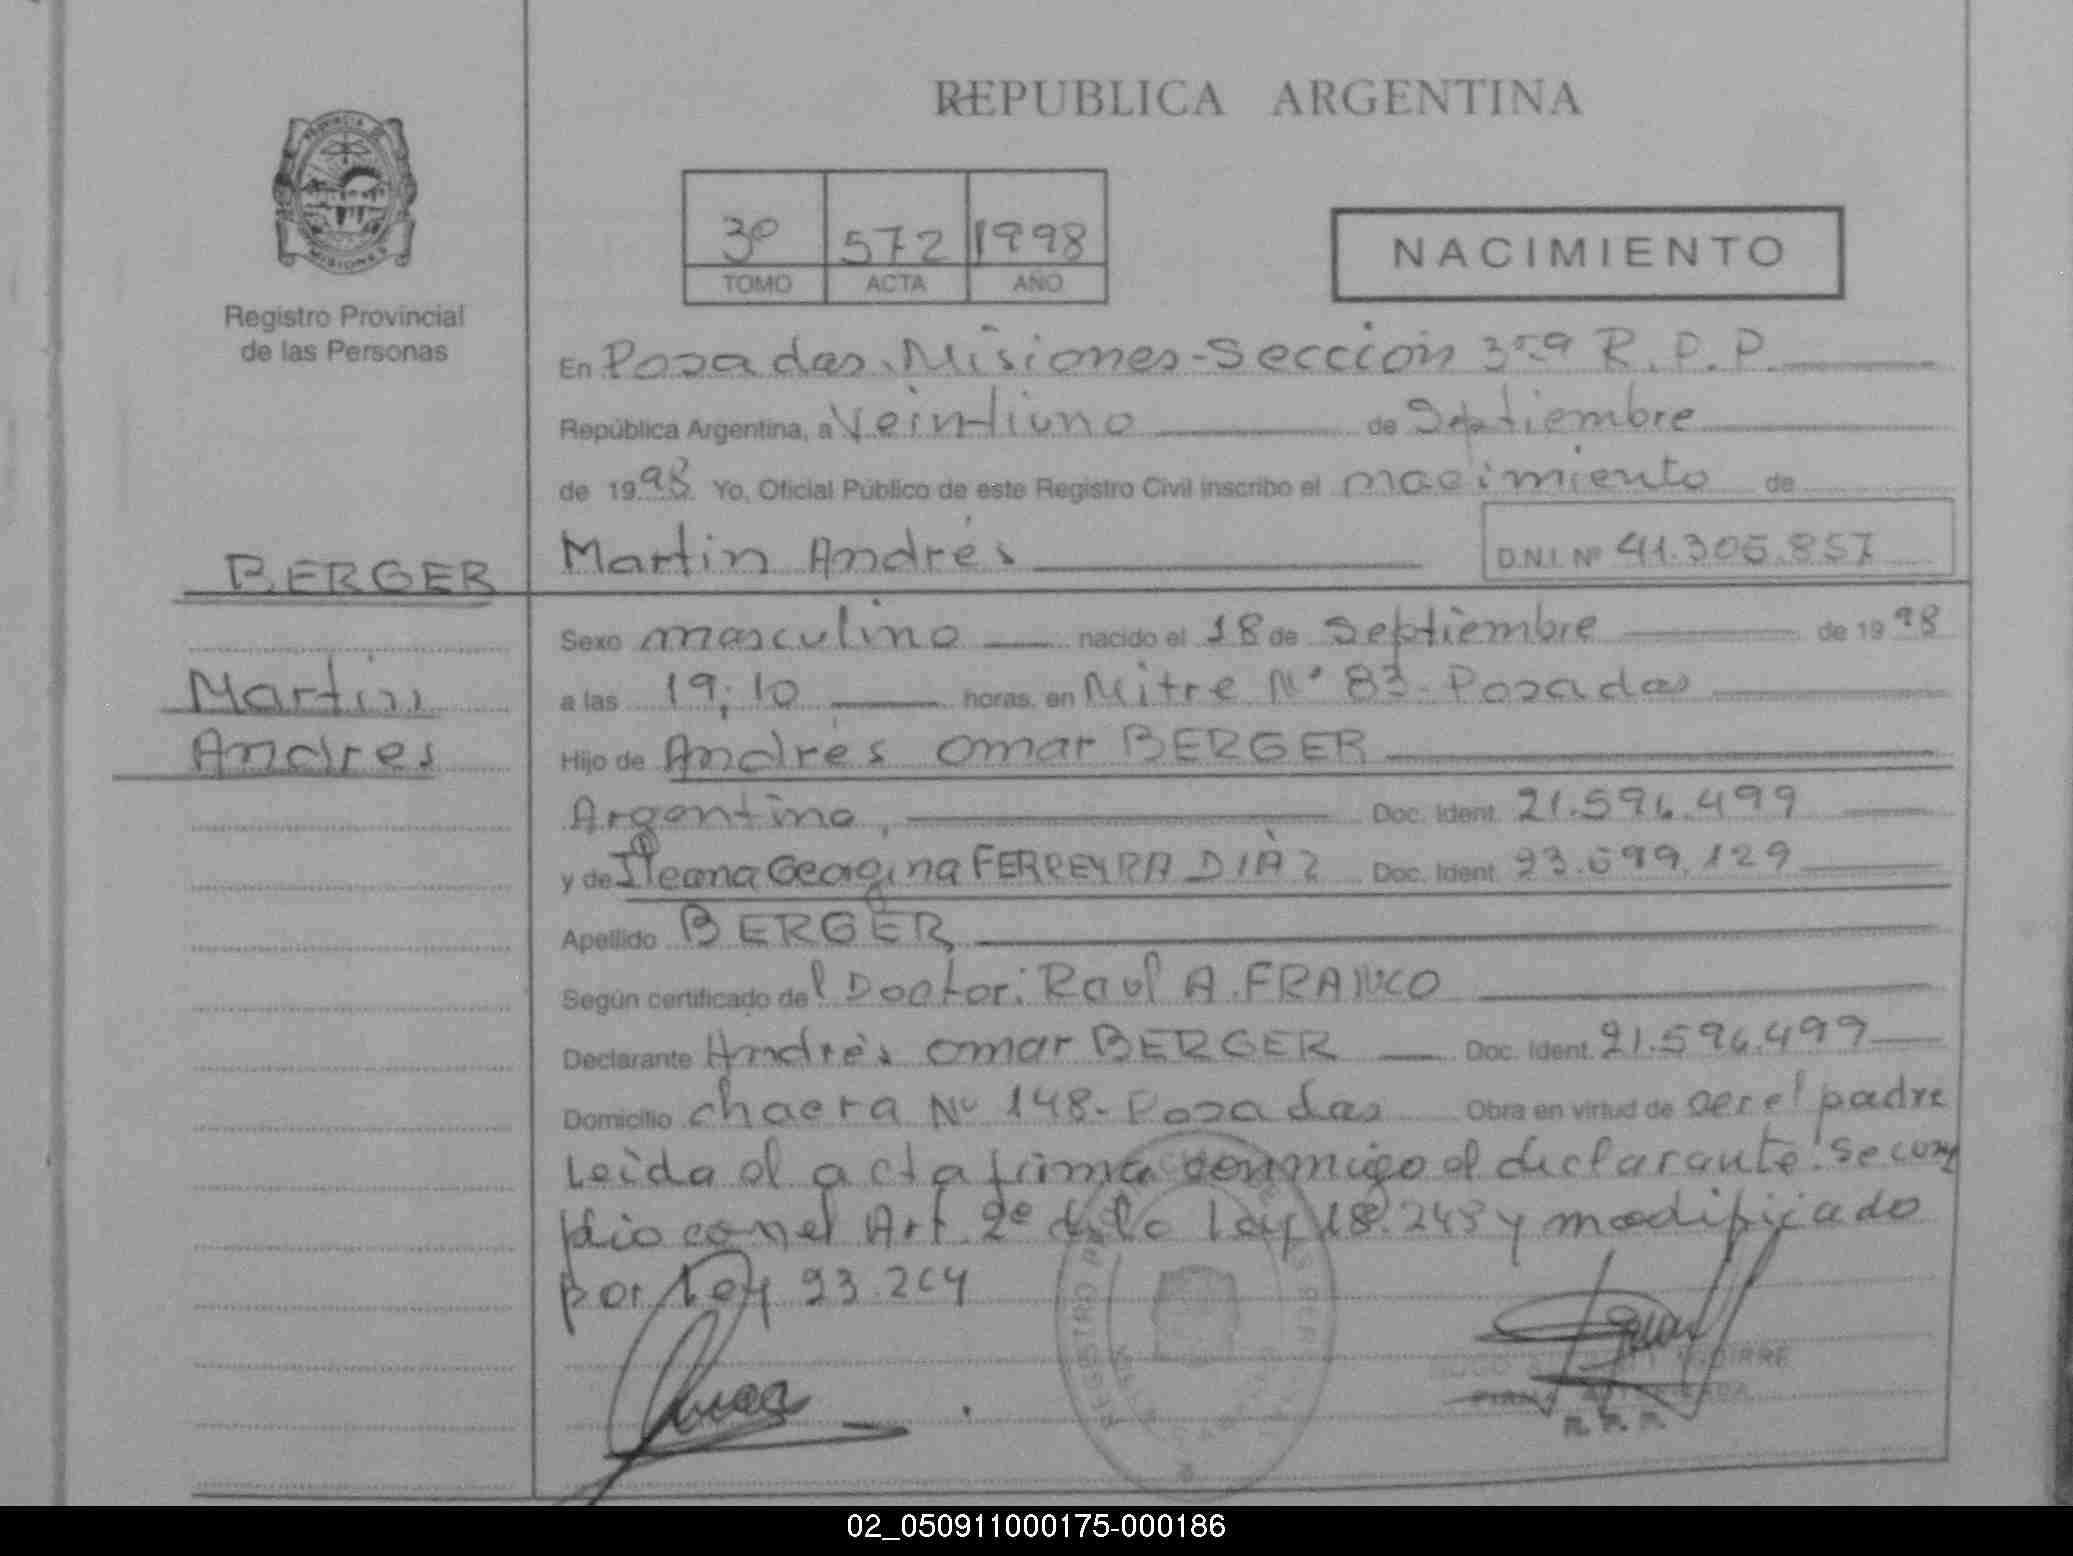 REPUBLICA ARGENTINA
PROVINCIA DE
MISIONES
Registro Provincial
de las Personas
3º 572 1998
TOMO ACTA AÑO
NACIMIENTO
En Posadas, Misiones-Sección 3ra R.P.P.
República Argentina, a Veintiuno de Septiembre
de 1998 Yo, Oficial Público de este Registro Civil inscribo el nacimiento de
Martin Andrés D.N.I. Nº 41.305.857
BERGER
Martin
Andres
Sexo masculino nacido el 18 de Septiembre de 1998
a las 19:10 horas, en Mitre Nº 83-Posadas
Hijo de Andrés Omar BERGER
Argentino, Doc. Ident. 21.596.499
y de Ileana Georgina FERREYRA DIÁZ Doc. Ident. 23.699.129
Apellido BERGER
Según certificado del Doctor: Raul A. FRANCO
Declarante Andrés Omar BERGER Doc. Ident. 21.596.499
Domicilio chacra Nº 148-Posadas Obra en virtud de ser el padre
Leida el acta firma conmigo el declarante. Se cum
plio con el Art. 2º de la Ley 18.248 y modificado
por Ley 23.264
AGUIRRE
FIRMA AUTORIZADA
R. P. P.
02_050911000175-000186